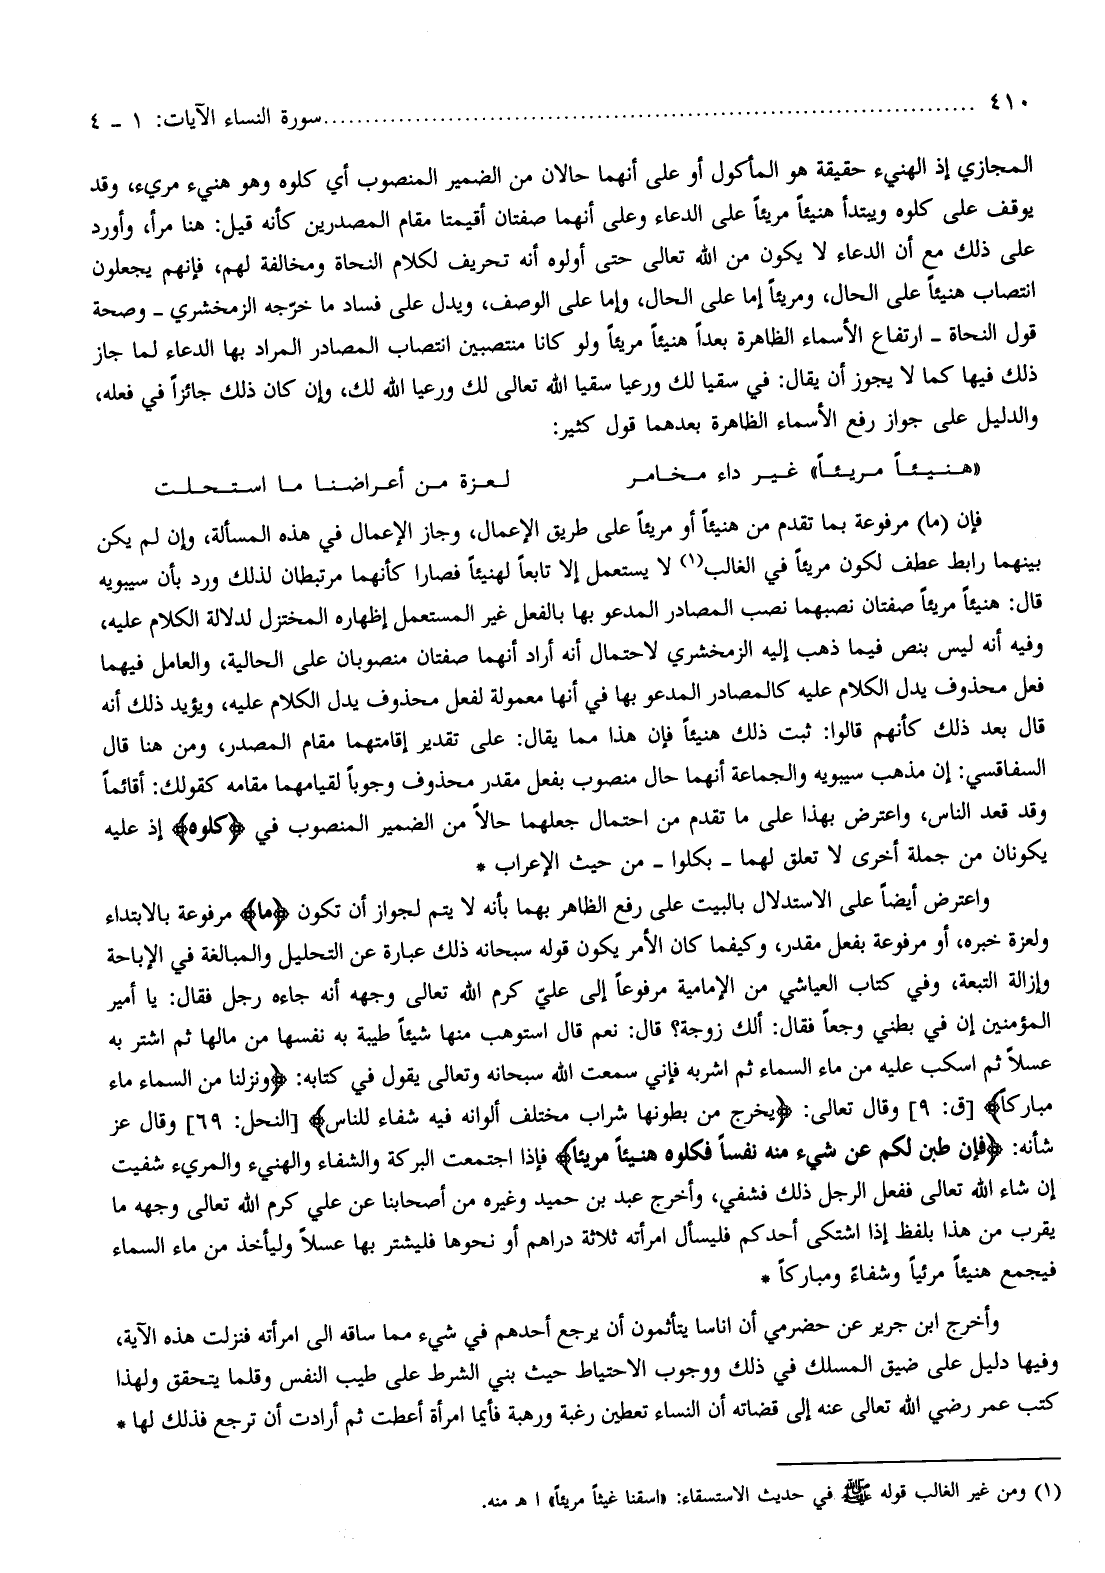 ٤١٠ ........................................................ سورة النساء الآيات: ١ - ٤
المجازي إذ الهنيء حقيقة هو المأكول أو على أنهما حالان من الضمير المنصوب أي كلوه وهو هنيء مريء، وقد
يوقف على كلوه ويبتدأ هنيئاً مريئاً على الدعاء وعلى أنهما صفتان أقيمتا مقام المصدرين كأنه قيل: هنا مرأ، وأورد
على ذلك مع أن الدعاء لا يكون من الله تعالى حتى أولوه أنه تحريف لكلام النحاة ومخالفة لهم، فإنهم يجعلون
انتصاب هنيئاً على الحال، ومريئاً إما على الحال، وإما على الوصف، ويدل على فساد ما خرّجه الزمخشري ـ وصحة
قول النحاة ـ ارتفاع الأسماء الظاهرة بعداً هنيئاً مريئاً ولو كانا منتصبين انتصاب المصادر المراد بها الدعاء لما جاز
ذلك فيها كما لا يجوز أن يقال: في سقيا لك ورعيا سقيا الله تعالى لك ورعيا الله لك، وإن كان ذلك جائزاً في فعله،
والدليل على جواز رفع الأسماء الظاهرة بعدهما قول كثير:
«هنيئاً مريئاً» غير داء مخامر لعزة من أعراضنا ما استحلت
فإن (ما) مرفوعة بما تقدم من هنيئاً أو مريئاً على طريق الإعمال، وجاز الإعمال في هذه المسألة، وإن لم يكن
بينهما رابط عطف لكون مريئاً في الغالب(١) لا يستعمل إلا تابعاً لهنيئاً فصارا كأنهما مرتبطان لذلك ورد بأن سيبويه
قال: هنيئاً مريئاً صفتان نصبهما نصب المصادر المدعو بها بالفعل غير المستعمل إظهاره المختزل لدلالة الكلام عليه،
وفيه أنه ليس بنص فيما ذهب إليه الزمخشري لاحتمال أنه أراد أنهما صفتان منصوبان على الحالية، والعامل فيهما
فعل محذوف يدل الكلام عليه كالمصادر المدعو بها في أنها معمولة لفعل محذوف يدل الكلام عليه، ويؤيد ذلك أنه
قال بعد ذلك كأنهم قالوا: ثبت ذلك هنيئاً فإن هذا مما يقال: على تقدير إقامتهما مقام المصدر، ومن هنا قال
السفاقسي: إن مذهب سيبويه والجماعة أنهما حال منصوب بفعل مقدر محذوف وجوباً لقيامهما مقامه كقولك: أقائماً
وقد قعد الناس، واعترض بهذا على ما تقدم من احتمال جعلهما حالاً من الضمير المنصوب في ﴿كلوه﴾ إذ عليه
يكونان من جملة أخرى لا تعلق لهما ـ بكلوا ـ من حيث الإعراب *
واعترض أيضاً على الاستدلال بالبيت على رفع الظاهر بهما بأنه لا يتم لجواز أن تكون ﴿ما﴾ مرفوعة بالابتداء
ولعزة خبره، أو مرفوعة بفعل مقدر، وكيفما كان الأمر يكون قوله سبحانه ذلك عبارة عن التحليل والمبالغة في الإباحة
وإزالة التبعة، وفي كتاب العياشي من الإمامية مرفوعاً إلى عليّ كرم الله تعالى وجهه أنه جاءه رجل فقال: يا أمير
المؤمنين إن في بطني وجعاً فقال: ألك زوجة؟ قال: نعم قال استوهب منها شيئاً طيبة به نفسها من مالها ثم اشتر به
عسلاً ثم اسكب عليه من ماء السماء ثم اشربه فإني سمعت الله سبحانه وتعالى يقول في كتابه: ﴿ونزلنا من السماء ماء
مباركاً﴾ [ق: ٩] وقال تعالى: ﴿يخرج من بطونها شراب مختلف ألوانه فيه شفاء للناس﴾ [النحل: ٦٩] وقال عز
شأنه: ﴿فإن طبن لكم عن شيء منه نفساً فكلوه هنيئاً مريئاً﴾ فإذا اجتمعت البركة والشفاء والهنيء والمريء شفيت
إن شاء الله تعالى ففعل الرجل ذلك فشفي، وأخرج عبد بن حميد وغيره من أصحابنا عن علي كرم الله تعالى وجهه ما
يقرب من هذا بلفظ إذا اشتكى أحدكم فليسأل امرأته ثلاثة دراهم أو نحوها فليشتر بها عسلاً وليأخذ من ماء السماء
فيجمع هنيئاً مرئياً وشفاءً ومباركاً *
وأخرج ابن جرير عن حضرمي أن اناسا يتأثمون أن يرجع أحدهم في شيء مما ساقه الى امرأته فنزلت هذه الآية،
وفيها دليل على ضيق المسلك في ذلك ووجوب الاحتياط حيث بني الشرط على طيب النفس وقلما يتحقق ولهذا
كتب عمر رضي الله تعالى عنه إلى قضاته أن النساء تعطين رغبة ورهبة فأيما امرأة أعطت ثم أرادت أن ترجع فذلك لها *
(١) ومن غير الغالب قوله ﷺ في حديث الاستسقاء: «اسقنا غيثاً مريئاً» ا هـ منه.